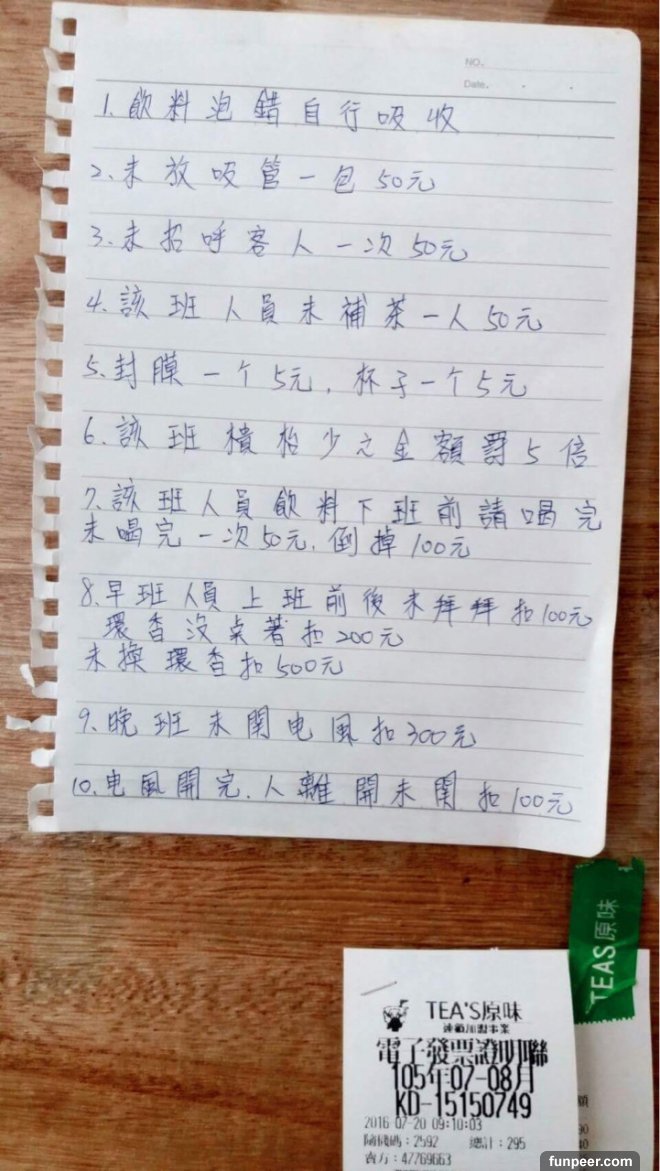 NO.
Date.
1. 飲料泡錯自行吸收
2. 未放吸管一包50元
3. 未招呼客人一次50元
4. 該班人員未補茶一人50元
5. 封膜一个5元, 杯子一个5元
6. 該班檯枱少之金額罰5倍
7. 該班人員飲料下班前請喝完
未喝完一次50元, 倒掉100元
8. 早班人員上班前後未拜拜扣100元
環香沒桌著扣200元
未換環香扣500元
9. 晚班未關电風扣300元
10. 电風開完, 人離開未關扣100元
TEAS原味
TEA'S原味
連鎖加盟事業
電子發票證明聯
105年07-08月
KD-15150749
2016-07-20 09:10:03
隨機碼:2592 總計:295
賣方:47769663
funpeer.com